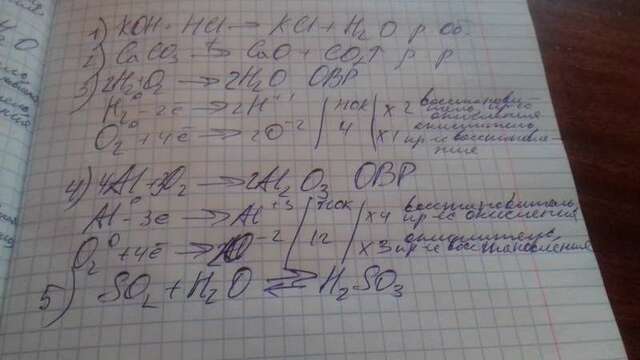 1) KOH + HCl → KCl + H₂O р. об.
2) CaCO₃ →t CaO + CO₂↑ р. р
3) 2H₂ + O₂ → 2H₂O ОВР
H₂⁰ - 2ē → 2H⁺¹ | НОК | x 2 восстановитель, пр-сс окисления
O₂⁰ + 4ē → 2O⁻² | 4 | x 1 окислитель, пр-сс восстановление
4) 4Al + 3O₂ → 2Al₂O₃ ОВР
Al⁰ - 3ē → Al⁺³ | НОК | x 4 восстановитель, пр-сс окисления
O₂⁰ + 4ē → 2O⁻² | 12 | x 3 окислитель, пр-сс восстановления
5) SO₂ + H₂O ⇄ H₂SO₃